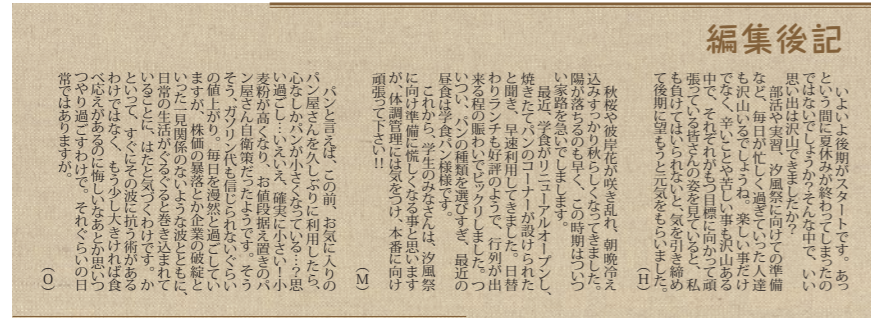 編集後記
いよいよ後期がスタートです。あっ
という間に夏休みが終わってしまったの
ではないでしょうか？そんな中で、いい
思い出は沢山できましたか？
部活や実習、汐風祭に向けての準備
など、毎日が忙しく過ぎていった人達
も沢山いるでしょうね。楽しい事だけ
でなく、辛いことや苦しい事も沢山ある
中で、それぞれがもつ目標に向かって頑
張っている皆さんの姿を見ていると、私
も負けてはいられないと、気を引き締め
て後期に望もうと元気をもらいました。
（H）
秋桜や彼岸花が咲き乱れ、朝晩冷え
込みすっかり秋らしくなってきました。
陽が落ちるのも早く、この時期はついつ
い家路を急いでしまします。
最近、学食がリニューアルオープンし、
焼きたてパンのコーナーが設けられた
と聞き、早速利用してきました。日替
わりランチも好評のようで、行列が出
来る程の賑わいでビックリしました。つ
いつい、パンの種類を選びすぎ、最近の
昼食は学食パン様様です。
これから、学生のみなさんは、汐風祭
に向け準備に慌しくなる事と思います
が、体調管理には気をつけ、本番に向け
頑張って下さい!!
（M）
パンと言えば、この前、お気に入りの
パン屋さんを久しぶりに利用したら、
心なしかパンが小さくなっている…？思
い過ごし…いえいえ、確実に小さい！小
麦粉が高くなり、お値段据え置きのパ
ン屋さん自衛策だったようです。そう
そう、ガソリン代も信じられないぐらい
の値上がり。毎日を漫然と過ごしてい
ますが、株価の暴落とか企業の破綻と
いった一見関係のないような波とともに、
日常の生活がぐるぐると巻き込まれて
いることに、はたと気づくわけです。か
といって、すぐにその波に抗う術がある
わけではなく、もう少し大きければ食
べ応えがあるのに悔しいなあとか思いつ
つやり過ごすわけで。それぐらいの日
常ではありますが。
（O）